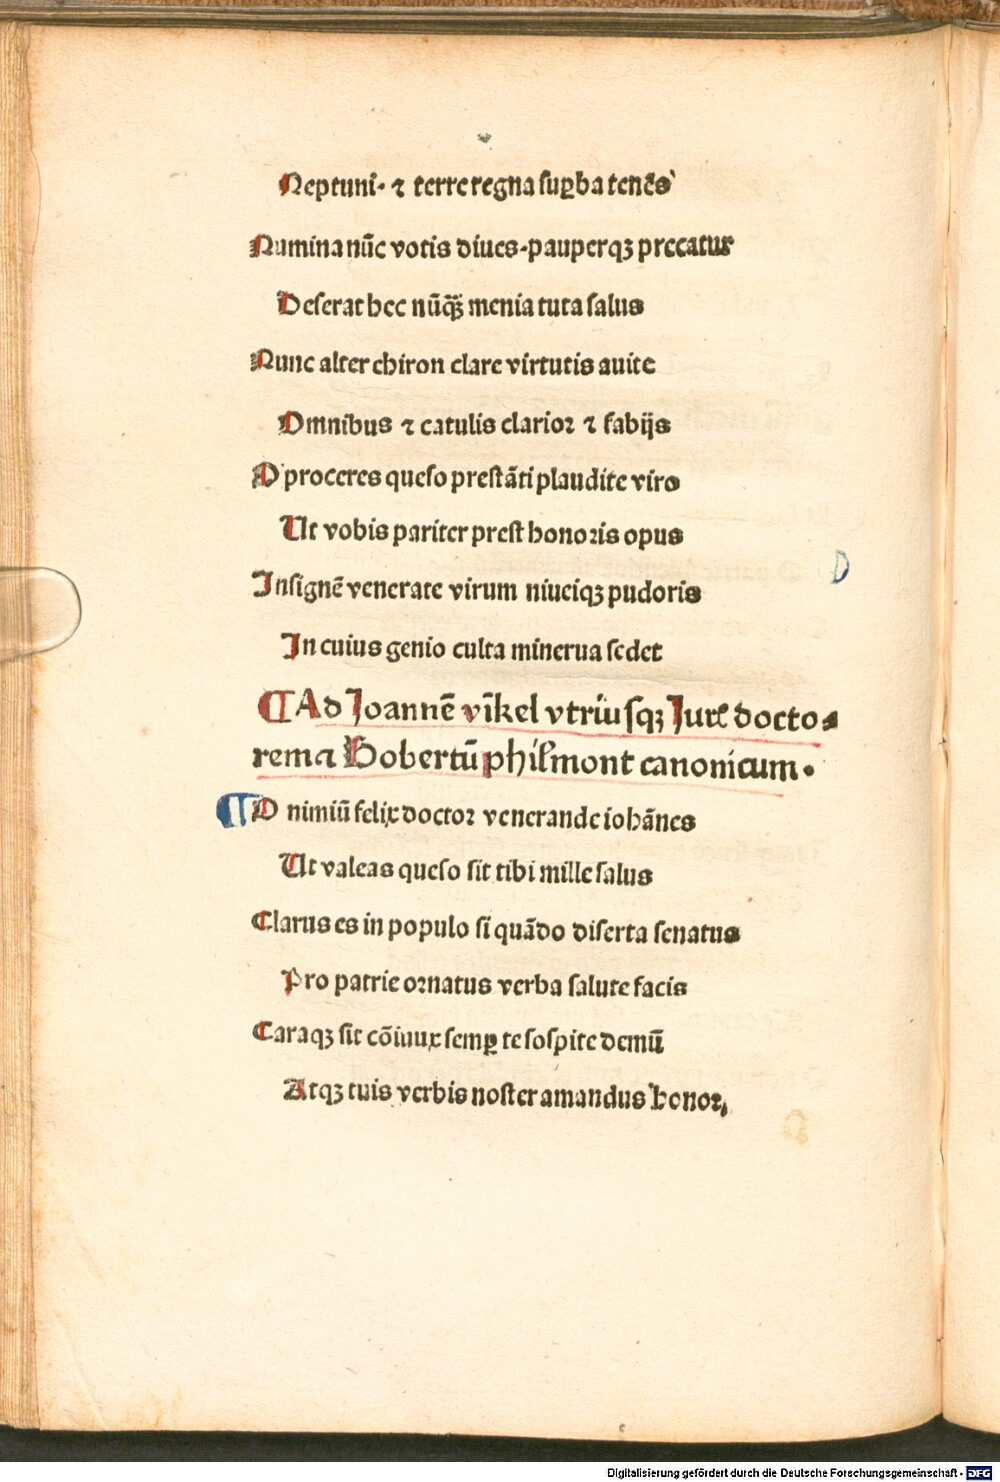 Neptuni· ⁊ terre regna suꝑba tenēs
Numina nūc votis diues·pauperqꝫ precatur
Deserat hec nūq̄ꝫ menia tuta salus
Nunc alter chiron clare virtutis auite
Omnibus ⁊ catulis clarior ⁊ fabijs
O proceres queso prestāti plaudite viro
Ut vobis pariter prest honoris opus
Insignē venerate virum niueiqꝫ pudoris
In cuius genio culta minerua sedet
D
¶Ad Joannē vīkel vtriusqꝫ Juris docto-
rem a Hobertū philmont canonicum.
¶O nimiū felix doctor venerande iohānes
Ut valeas queso sit tibi mille salus
Clarus es in populo si quādo diserta senatus
Pro patrie ornatus verba salute facis
Caraqꝫ sit cōiuux semꝑ te sospite demū
Atqꝫ tuis verbis noster amandus honor,
Digitalisierung gefördert durch die Deutsche Forschungsgemeinschaft - DFG